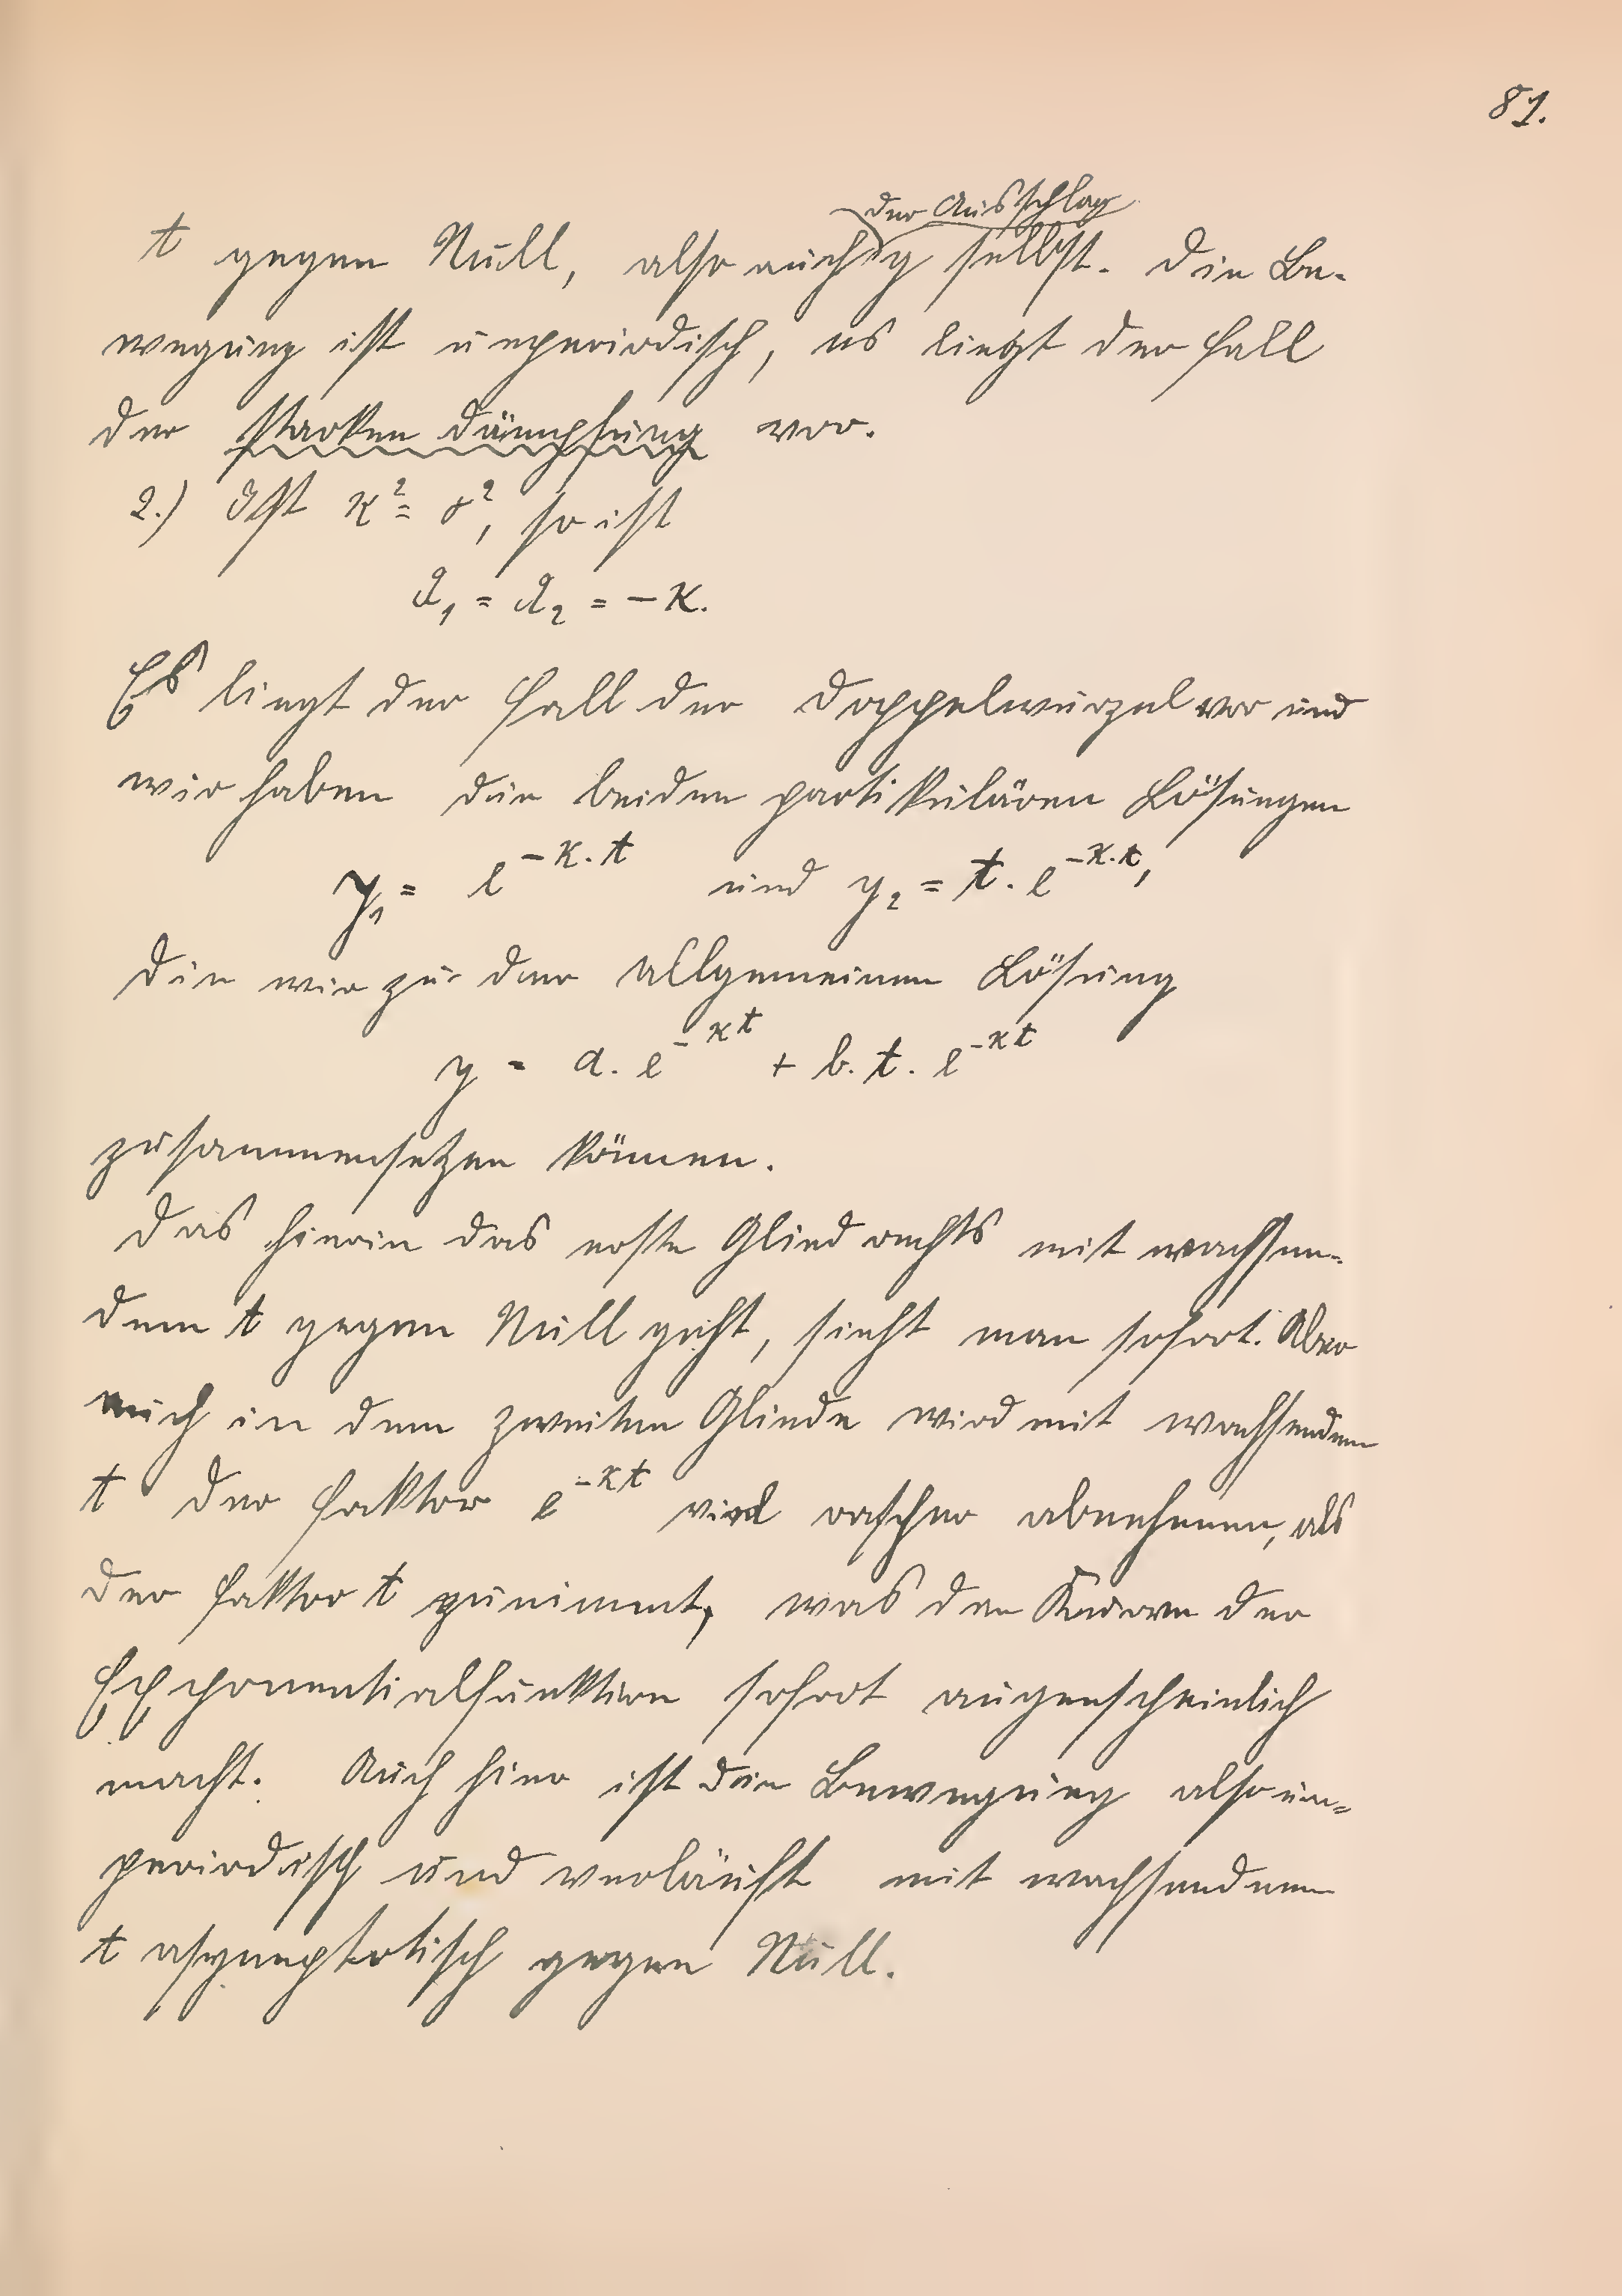 81.
der Ausschlag
t gegen Null, also auch y selbst. Die Be-
wegung ist unperiodisch, es liegt der Fall
der starken Dämpfung vor.
2.) Ist κ² = σ², so ist
α₁ = α₂ = -κ.
Es liegt der Fall der Doppelwurzel vor und
wir haben die beiden partikulären Lösungen
y₁ = e^{-κ.t} und y₂ = t.e^{-κ.t},
die wir zu der allgemeinen Lösung
y = a.e^{-κt} + b.t.e^{-κt}
zusammensetzen können.
Das hierin das erste Glied rechts mit wachsen-
dem t gegen Null geht, sieht man sofort. Aber
auch in dem zweiten Gliede wird mit wachsendem
t der Faktor e^{-κt} viel rascher abnehmen, als
der Faktor t zunimmt, was den der
Exponentialfunktion sofort augenscheinlich
macht. Auch hier ist die Bewegung also un-
periodisch und verläuft mit wachsendem
t asymptotisch gegen Null.